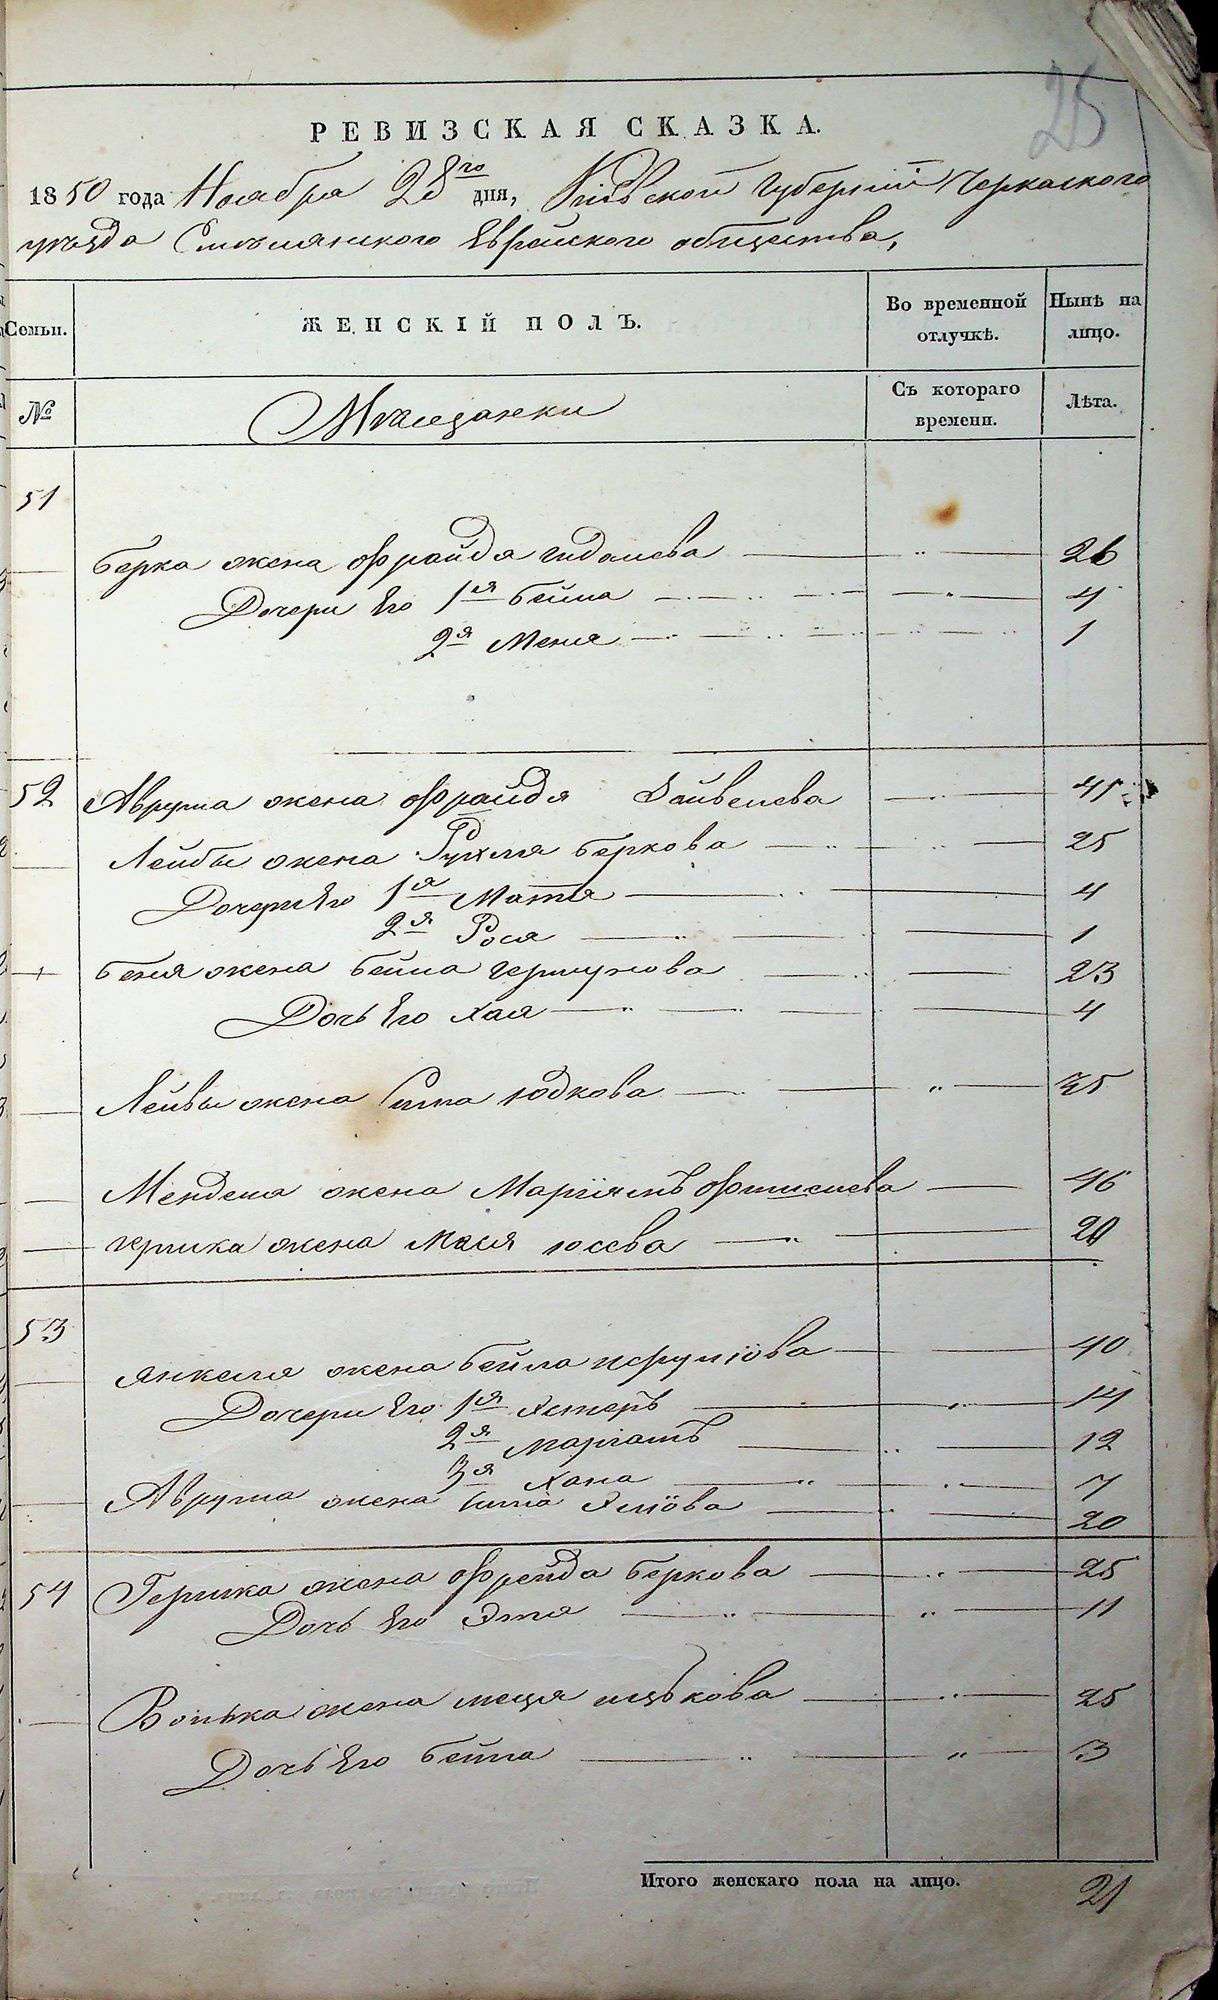 25
РЕВИЗСКАЯ СКАЗКА.
1850 года Ноября 28го дня, Кіевской губерніи Черкаского
уѣзда Смѣлянского Еврейского общества,
Семьи.
ЖЕНСКІЙ ПОЛЪ.
Во временной отлучкѣ.
Нынѣ на лицо.
№
Мѣщанки
Съ котораго времени.
Лѣта.
51
Берка жена Фрайда Гидалева — " — 26
Дочери Его 1я Бейла — " — 4
2я Меня — 1
52 Аврума жена Фрайда Файвелева — 45
Лейбы жена Рухля Беркова — 25
Дочери Его 1я Матля — 4
2я Рося — 1
Беня жена Бейла Гершунова — 23
Дочь Его Хая — 4
Лейвы жена Сима Юдкова — " — 35
Менделя жена Маріямъ — 46
Гершка жена Мася Юсева — 20
53
Янкеля жена Бейла Исруліова — 40
Дочери Его 1я Эстеръ — 14
2я Маріамъ — 12
3я Хана — 7
Аврума жена Эліова — 20
54 Гершка жена Фрейда Беркова — 25
Дочь Его Этля — " — 11
Волька жена Ицькова — 25
Дочь Его Бейла — " — 3
Итого женскаго пола на лицо. 21